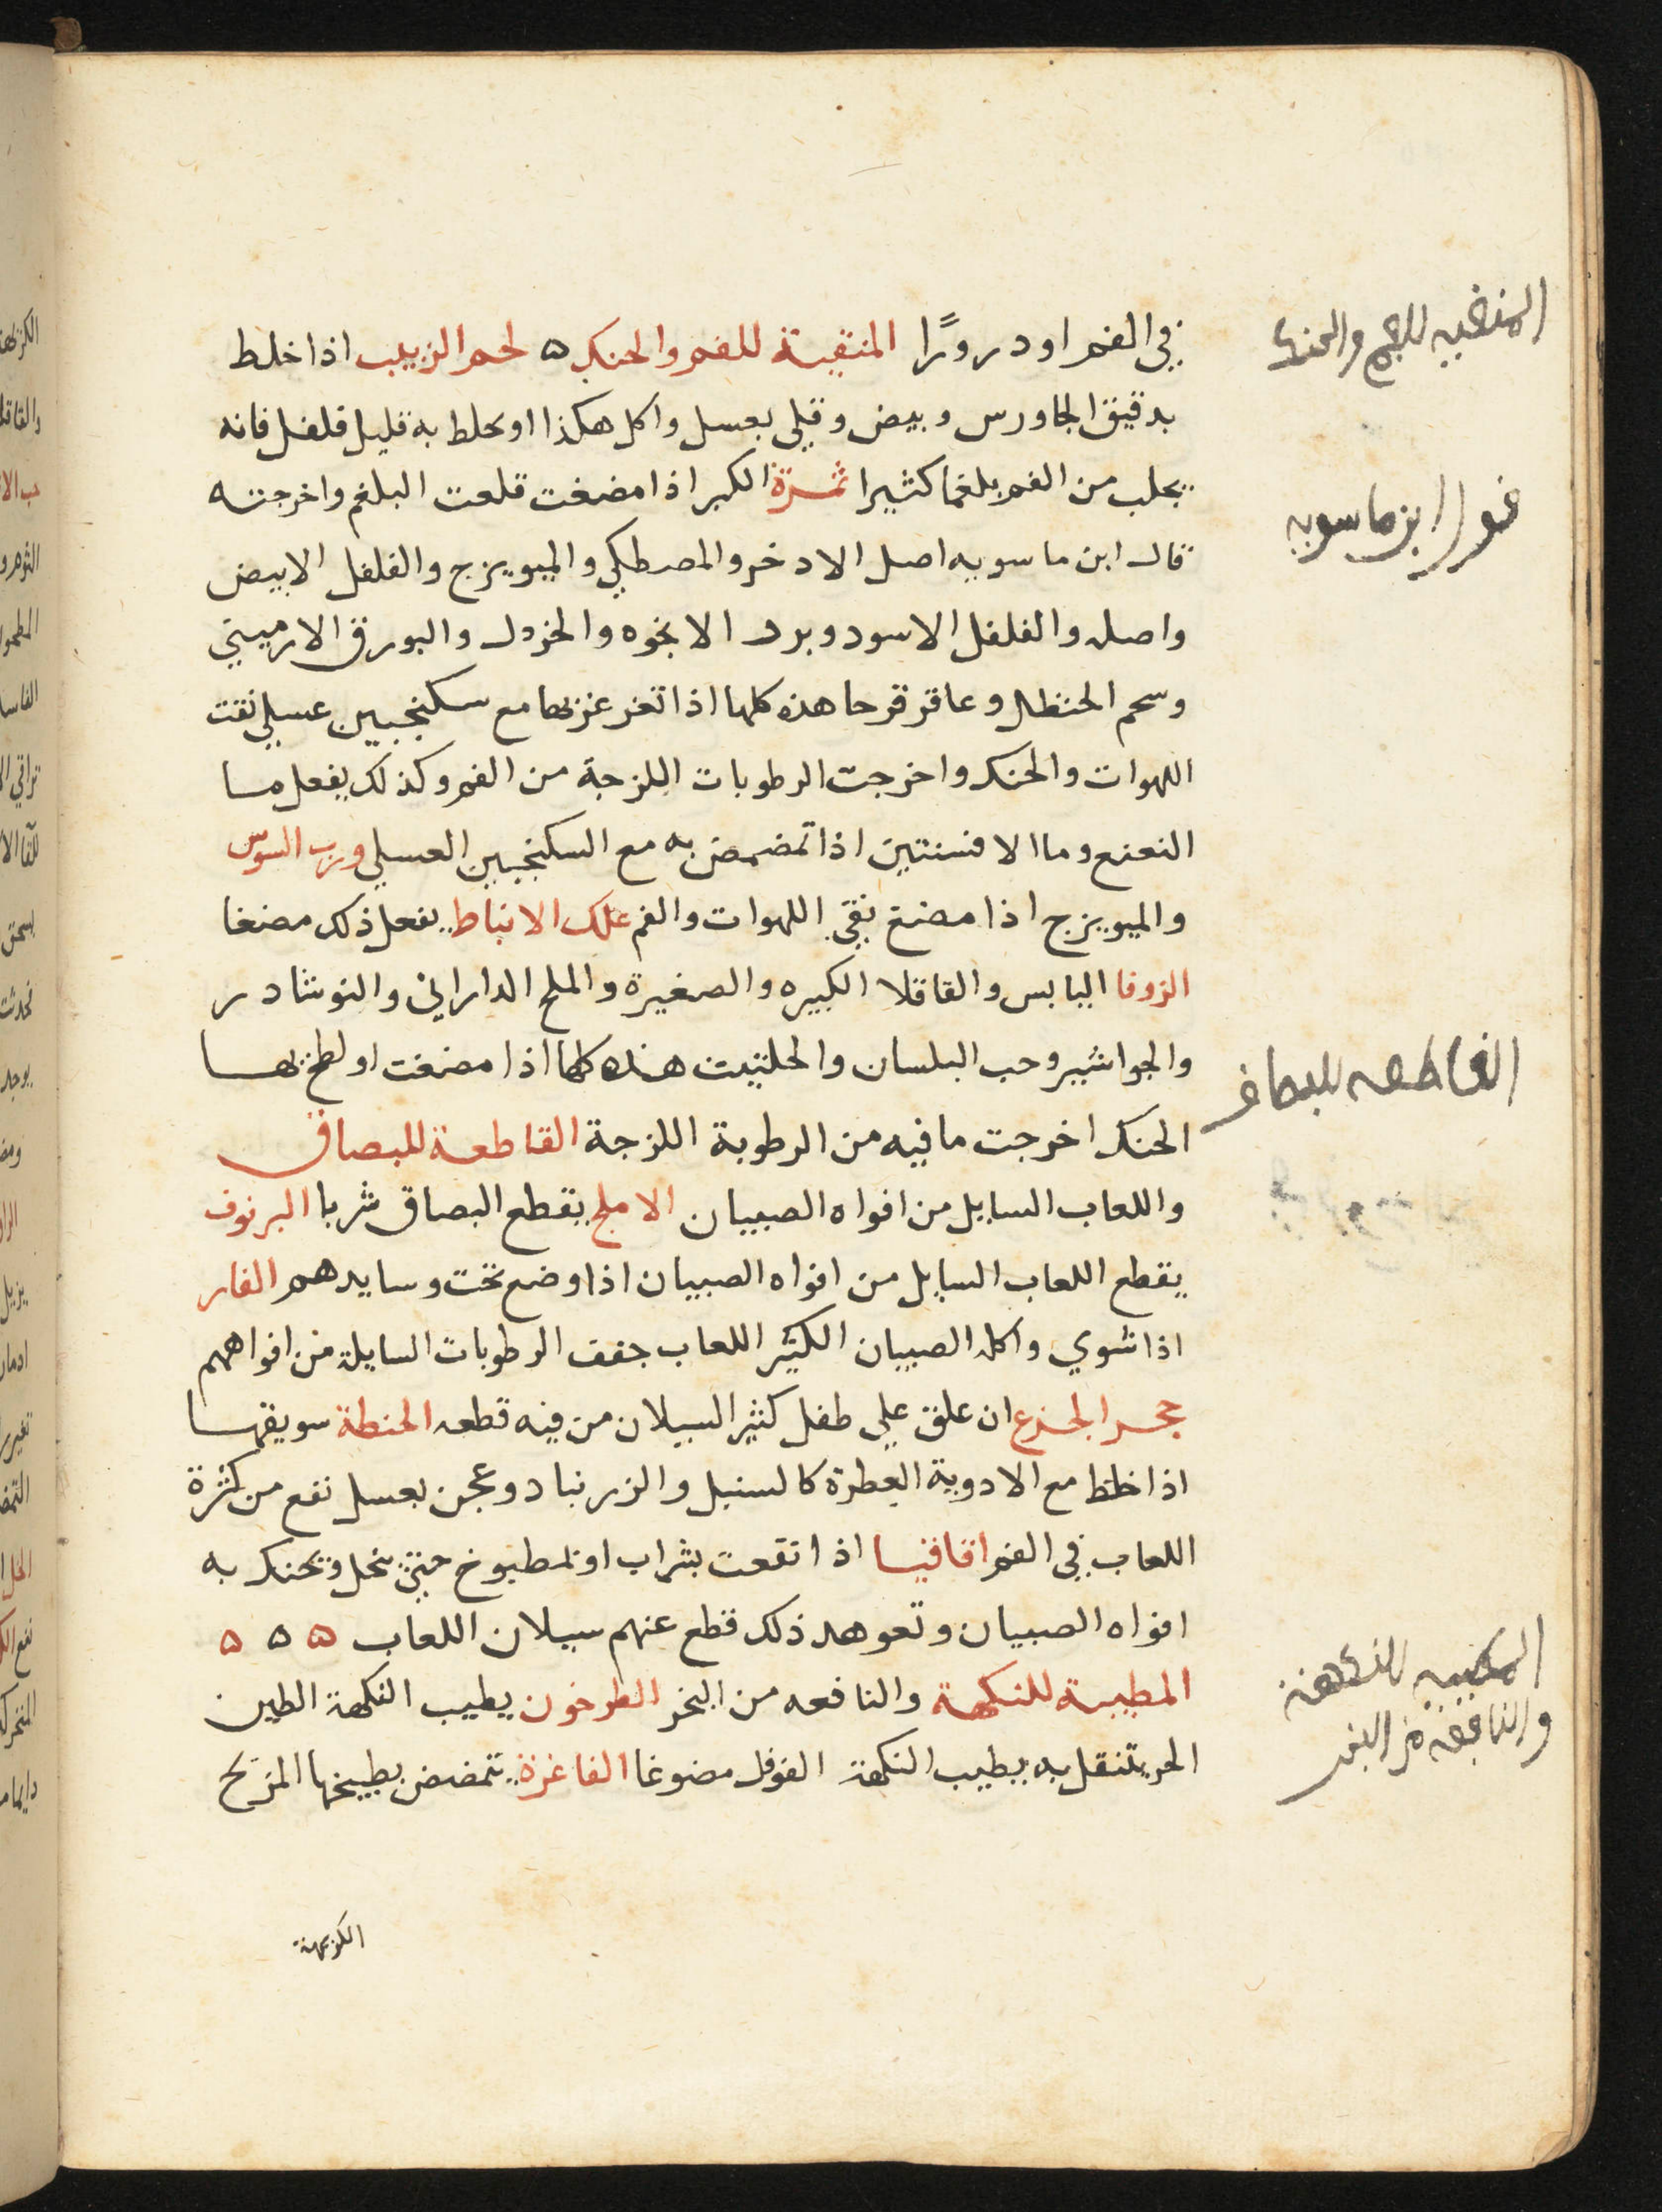 في الفم او درورًا المنقية للفم والحنك ه لحم الزبيب اذا خلط
بدقيق الجاورس وبيض وقلي بعسل واكل هكذا او يخلط به قليل فلفل فانه
يجلب من الفم بلغما كثيرا ثمرة الكبر اذا مضغت قلعت البلغم واخرجته
قال ابن ماسويه اصل الادخر والمصطكي والميويزج والفلفل الابيض
واصله والفلفل الاسود وبرد الانجوه والخردل والبورق الارميني
وسحم الحنظل وعاقرقرحا هذه كلها اذا تغرغر بها مع سكنجبين عسلي نقت
اللهوات والحنك واخرجت الرطوبات اللزجة من الفم وكذلك يفعل ما
النعنع وما الافسنتين اذا تمضمض به مع السكنجبين العسلي ورب السوس
والميويزج اذا مضغ نقي اللهوات والفم علك الانباط يفعل ذلك مضغا
الزوفا اليابس والقاقلا الكبيره والصغيرة والملح الداراني والنوشادر
والجواشير وحب البلسان والحلتيت هذه كلها اذا مضغت او لطخ بها
الحنك اخرجت ما فيه من الرطوبة اللزجة القاطعة للبصاق
واللعاب السايل من افواه الصبيان الاملج يقطع البصاق شربا البرنوف
يقطع اللعاب السايل من افواه الصبيان اذا وضع تحت وسايدهم الفار
اذا شوي واكله الصبيان الكثير اللعاب جفف الرطوبات السايلة من افواههم
حجر الجزع ان علق علي طفل كثير السيلان من فيه قطعه الحنطة سويقها
اذا خلط مع الادوية العطرة كالسنبل والزرنباد وعجن بعسل نفع من كثرة
اللعاب في الفم اقاقيا اذا نقعت بشراب او بمطبوخ حتي ينحل وتحنك به
افواه الصبيان وتعوهد ذلك قطع عنهم سيلان اللعاب ه ه ه
المطيبة للنكهة والنافعه من البخر الطرخون يطيب النكهة الطين
الحر يتنقل به يطيب النكهة الفوفل مضوغا الفاغرة يتمضمض بطبيخها المزيح
الكريهة
المنقيه للفم والحنك
قول ابن ماسويه
القاطعه للبصاق
المطيبه للنكهة
والنافعة من البخر